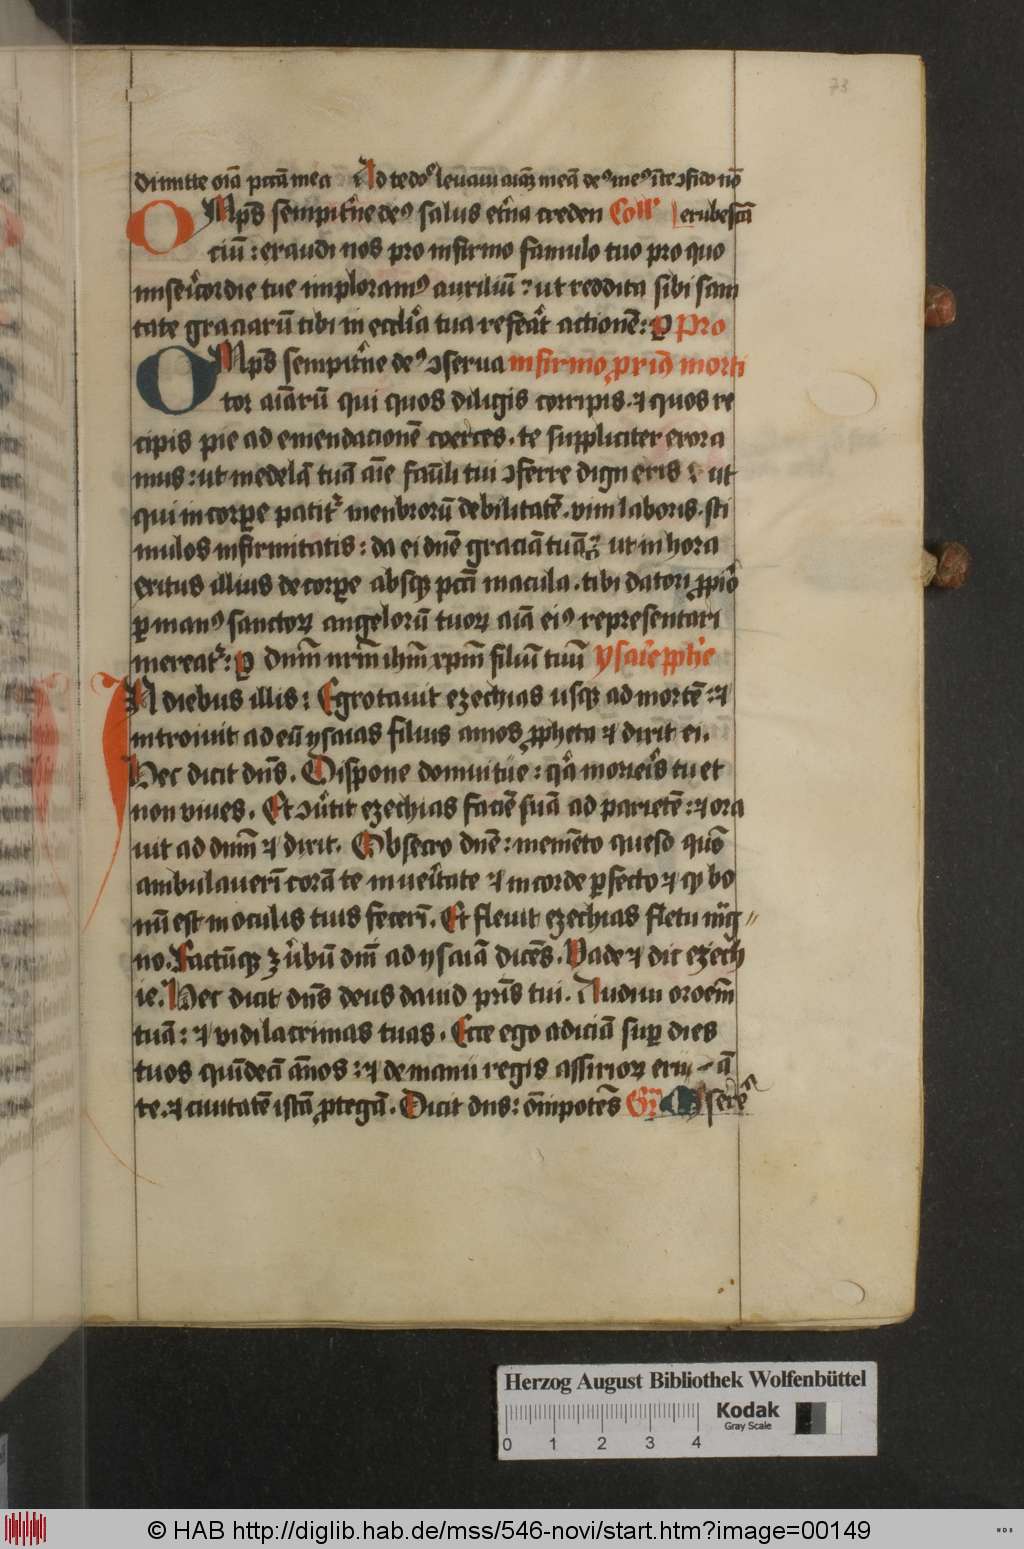 73
dimitte oīa pctā mea Ad te dn̄e leuaui aīaꝫ meā de⁹ me⁹ ī te ↄfido nō
OMps̄ sempit̄ne de⁹ salus et̄na creden Coll' erubescā
ciū : exaudi nos pro infirmo famulo tuo pro quo
mise͛icordie tue imploram⁹ auxiliū : ut reddita sibi sani
tate graciarū tibi in eccl͛ia tua refeāt actionē : P Pro
OMps̄ sempit̄ne de⁹ ↄserua infirmo ꝓximo morti
tor aīarū qui quos diligis corripis . ⁊ quos re
cipis pie ad emendacionē coerces . te suppliciter exora
mus : ut medelā tuā aīe famli tui ↄferre digneris : ut
qui in corpe patit͛ menbrorū debilitatē . vim laboris . sti
mulos infirmitatis : da ei dn̄e graciā tuā : ut in hora
exitus illius de corpe absqꝫ pctī macula . tibi datori ꝓpio
ꝑ man⁹ sanctoꝝ angelorū tuoꝝ aīa ei⁹ representari
mereat͛ : P dnm̄ nrm̄ ihm̄ xpm̄ filiū tuū ysaie ꝓphe
IN diebus illis : Egrotauit ezechias usqꝫ ad mortē : ⁊
introiuit ad eū ysaias filius amos ꝓpheta ⁊ dixit ei .
Hec dicit dn̄s . Dispone domui tue : q͛a morie͛is tu et
non viues . Et ↄu͛tit ezechias faciē suā ad parietē : ⁊ ora
uit ad dnm̄ ⁊ dixit . Obsecro dn̄e : memēto queso quō
ambulauerī corā te in ue͛itate ⁊ in corde ꝑfecto ⁊ qꝫ bo
nū est in oculis tuis fecerī . Et fleuit ezechias fletu mag
no . Factūqꝫ ē u͛bū dnī ad ysaiā dicēs . Vade ⁊ dic ezech
ie . Hec dicit dn̄s deus dauid pr̄is tui . Audiui oroem̄
tuā : ⁊ vidi lacrimas tuas . Ecce ego adiciā suꝑ dies
tuos quīdecī ānos : ⁊ de manu regis assirioꝝ eru a
te . ⁊ ciuitatē istā ꝓtegā . Dicit dn̄s : om̄ipotēs Gr̄ Miserē
Herzog August Bibliothek Wolfenbüttel
Kodak
Gray Scale
0 1 2 3 4
© HAB http://diglib.hab.de/mss/546-novi/start.htm?image=00149